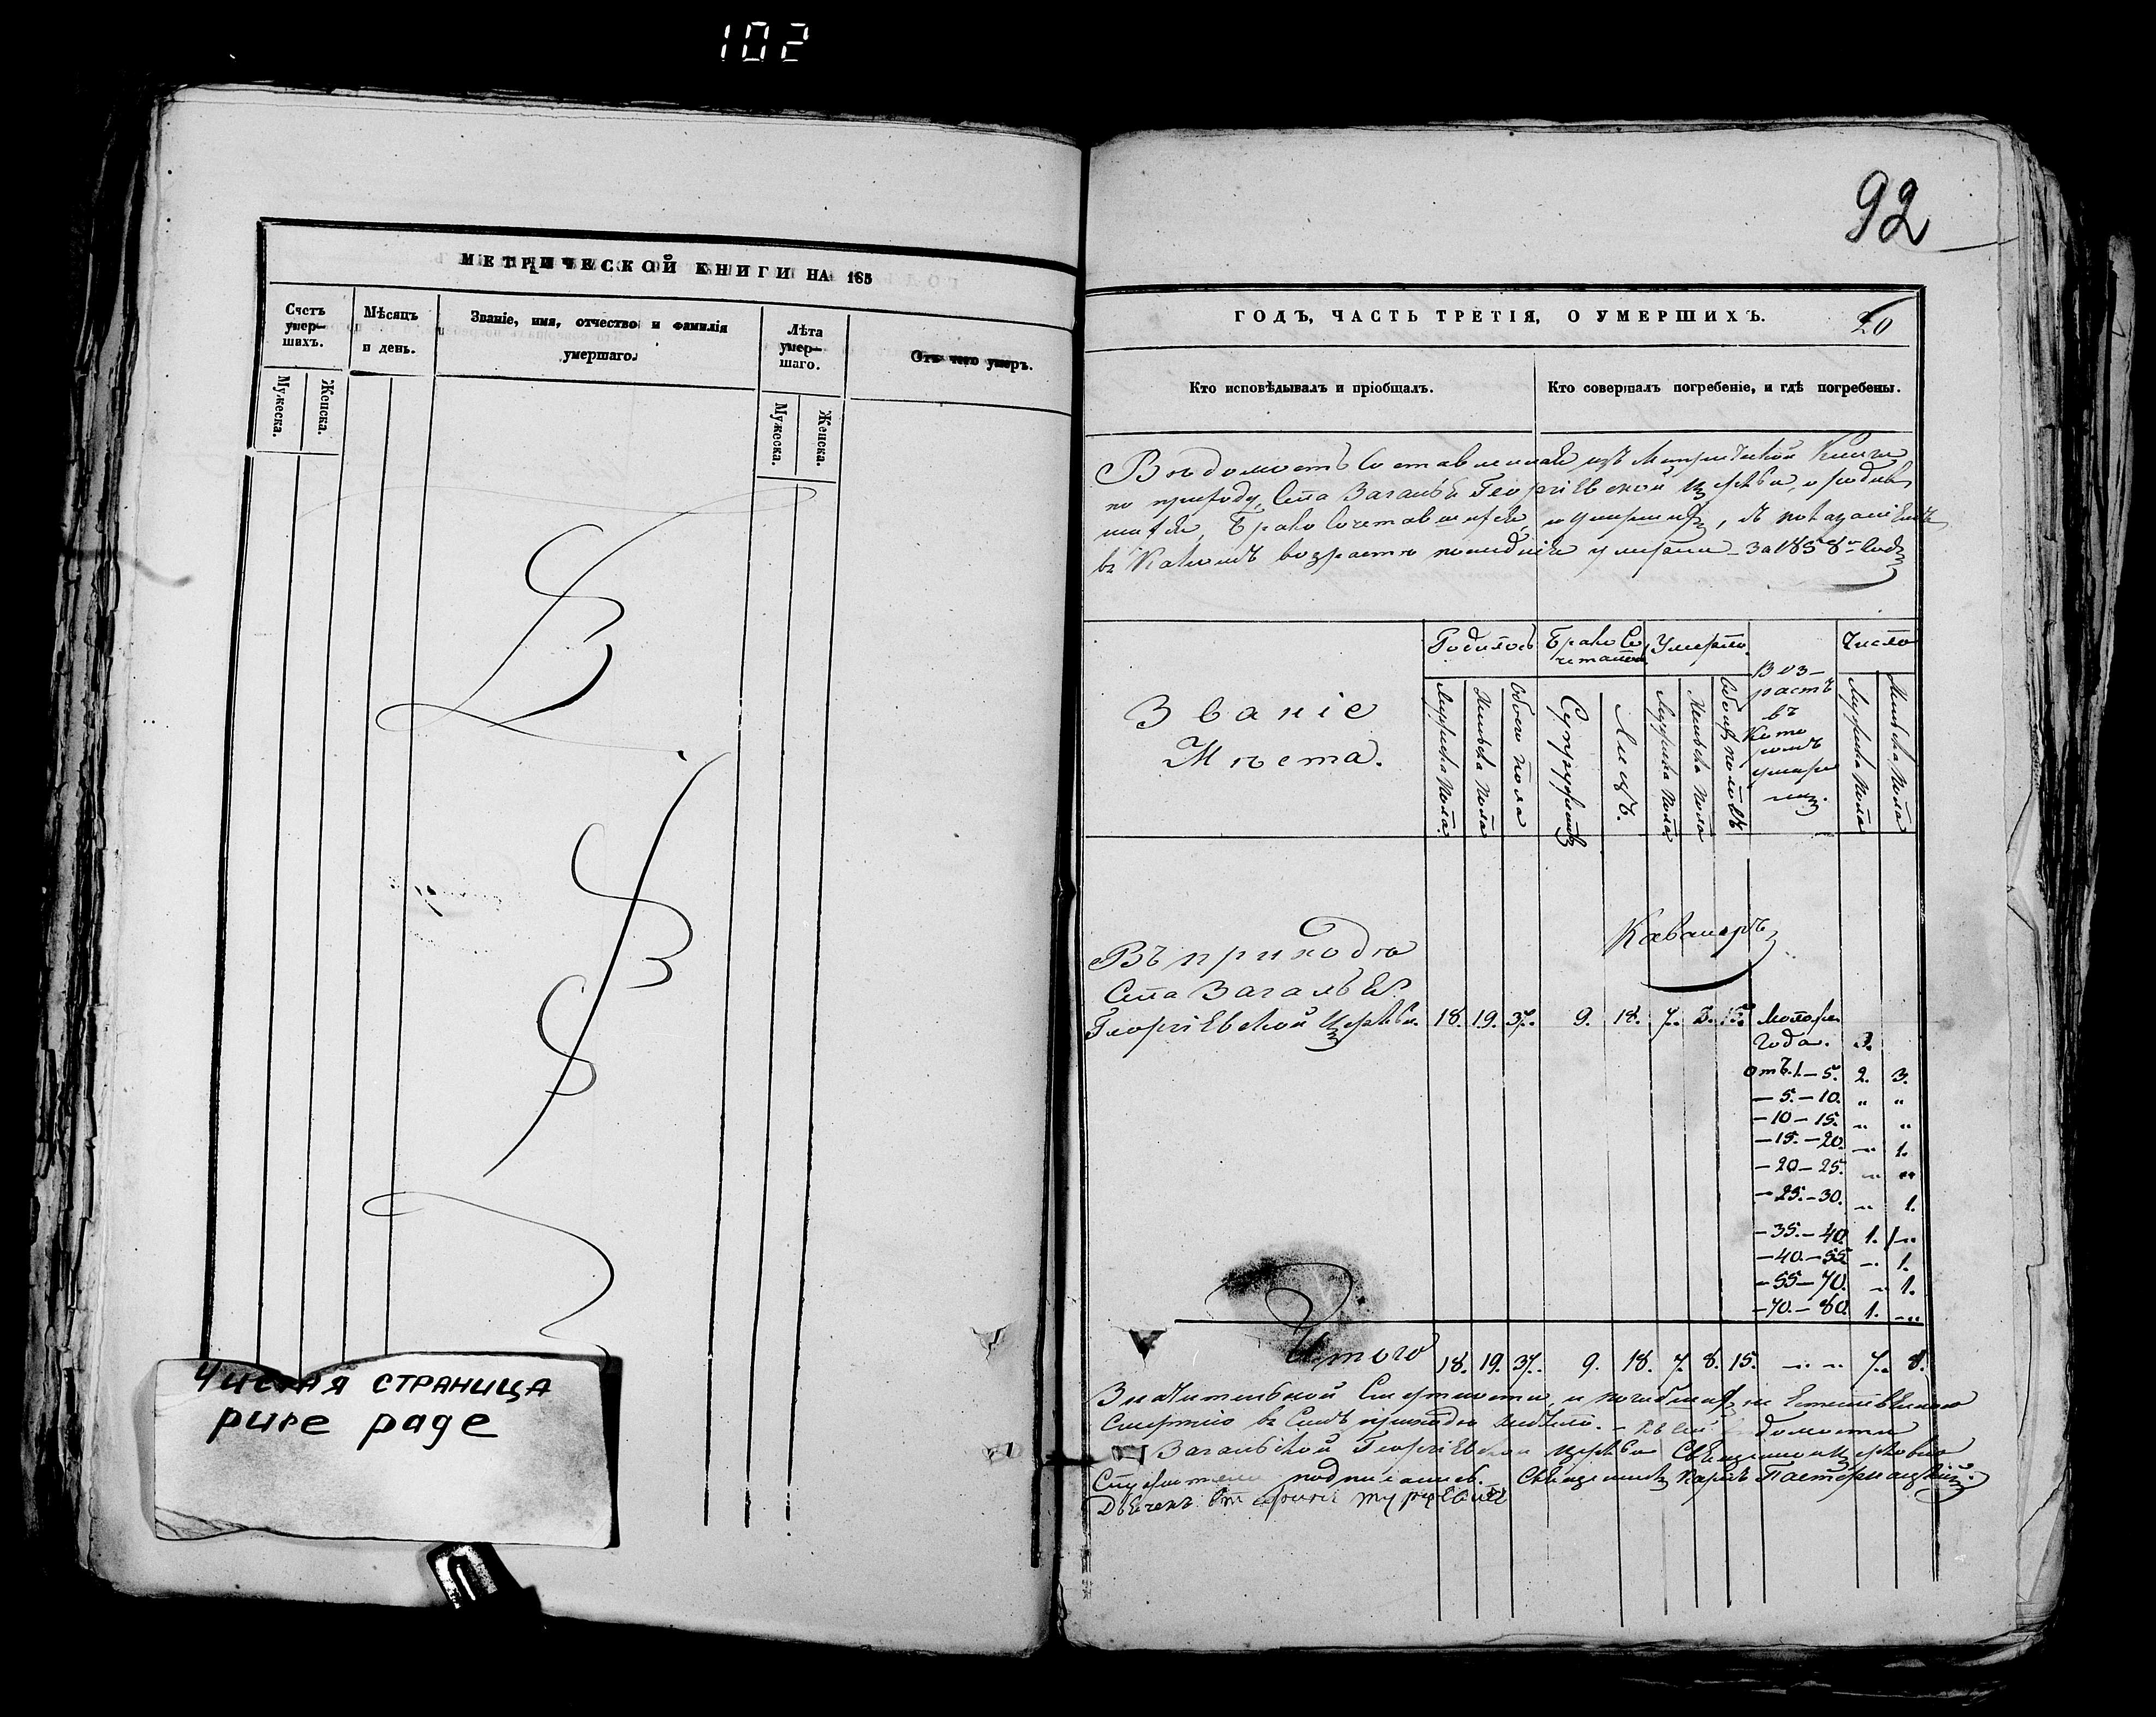 102
МЕТРИЧЕСКОЙ КНИГИ НА 185
Счетъ умер-шихъ.
Мужеска.
Женска.
Мѣсяцъ и день.
Званіе, имя, отчество и фамилія умершаго.
Лѣта умер-шаго.
Мужеска.
Женска.
Отъ чего умеръ.
Чистая страница
pure page
92
ГОДЪ, ЧАСТЬ ТРЕТІЯ, О УМЕРШИХЪ.
20
Кто исповѣдывалъ и пріобщалъ.
Кто совершалъ погребеніе, и гдѣ погребены.
Вѣдомость Составленная изъ Метрической Книги
по приходу, Села Загалья Георгіевской церкви, о родив
шихся, Брако сочетавшихся, и умершихъ, съ показаніемъ
въ Какомъ возрастѣ последнія умерли за 1858й Годъ
Званіе
Мѣста.
Родилось
Мужеска пола
Женска пола
Обоего пола
Брако Со
четалось
Супружествъ
Лицъ.
Умерло.
Мужеска пола
Женска пола
Обоихъ половъ
Воз-
растъ
въ
Кото
ромъ
умерли
Число
Мужеска пола
Женска пола
Въ приходѣ
Села Загалья
Георгіевской Церкви. 18. 19. 37. 9. 18. 7. 8. 15.
Года. 3.
Отъ 1.-5. 2. 3.
-5.-10. " "
-10-15. " "
-15.-20. " 1.
-20-25. " "
-25.-30. " 1.
-35.-40. 1. "
-40.-55 " 1.
-55-70. " 1.
-70.-80. 1. "
Итого 18. 19. 37. 9. 18. 7. 8. 15. " " 7. 8.
Значительной Смертности, и погибшихъ не Естественною
Смертію въ Семъ приходѣ небыло. - Къ сей Вѣдомости
Загальской Георгіевской церкви Священноцерковно
Служители подписались. Священникъ